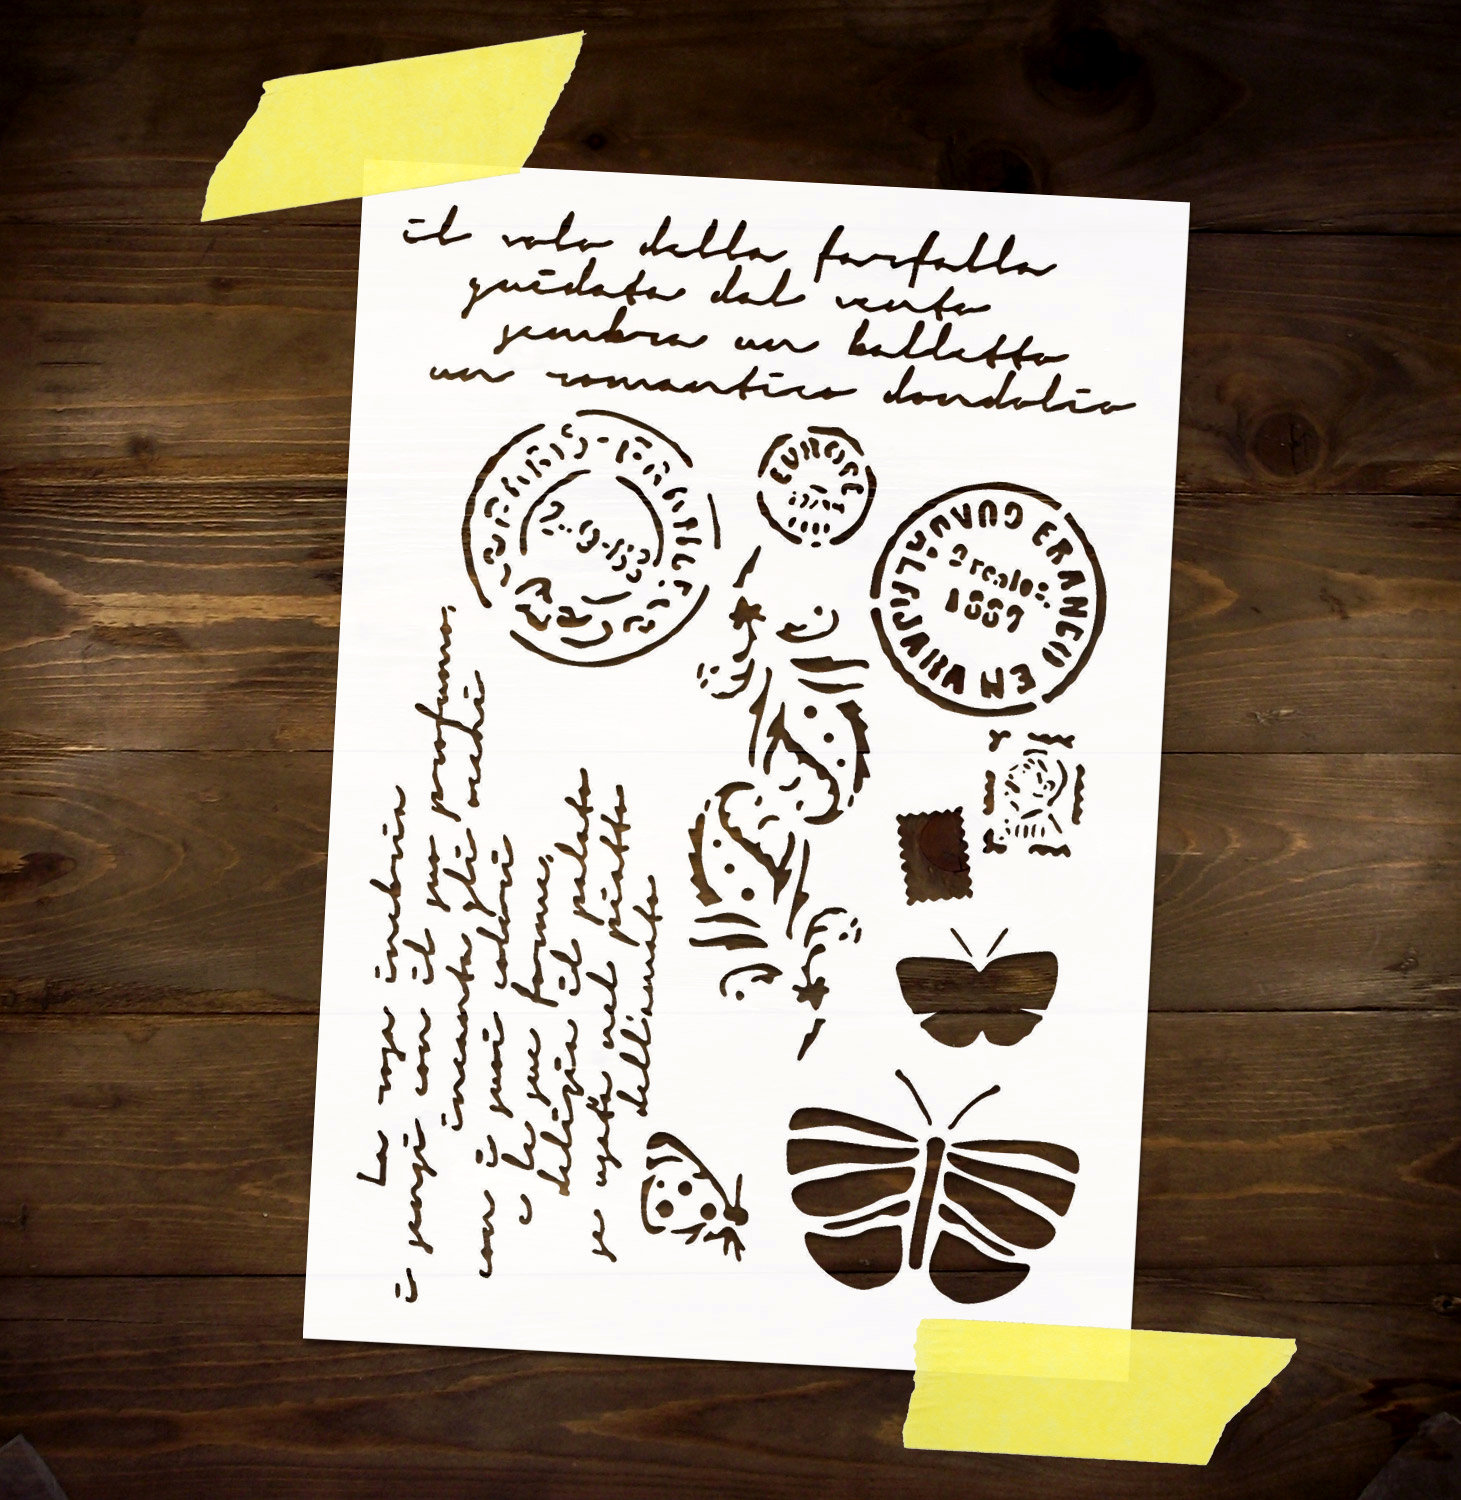 il volo della farfalla
guidata dal vento
sembra un balletto
un romantico dondolio
EUROPE
1111
2-9-153
GUADALAJARA
FRANCO EN
2 reales.
1887
La rosa inebria
i sensi con il suo profumo,
incanta gli occhi
con i suoi colori
e le sue forme,
delizia il palato
se usata nel piatto
dell'amato